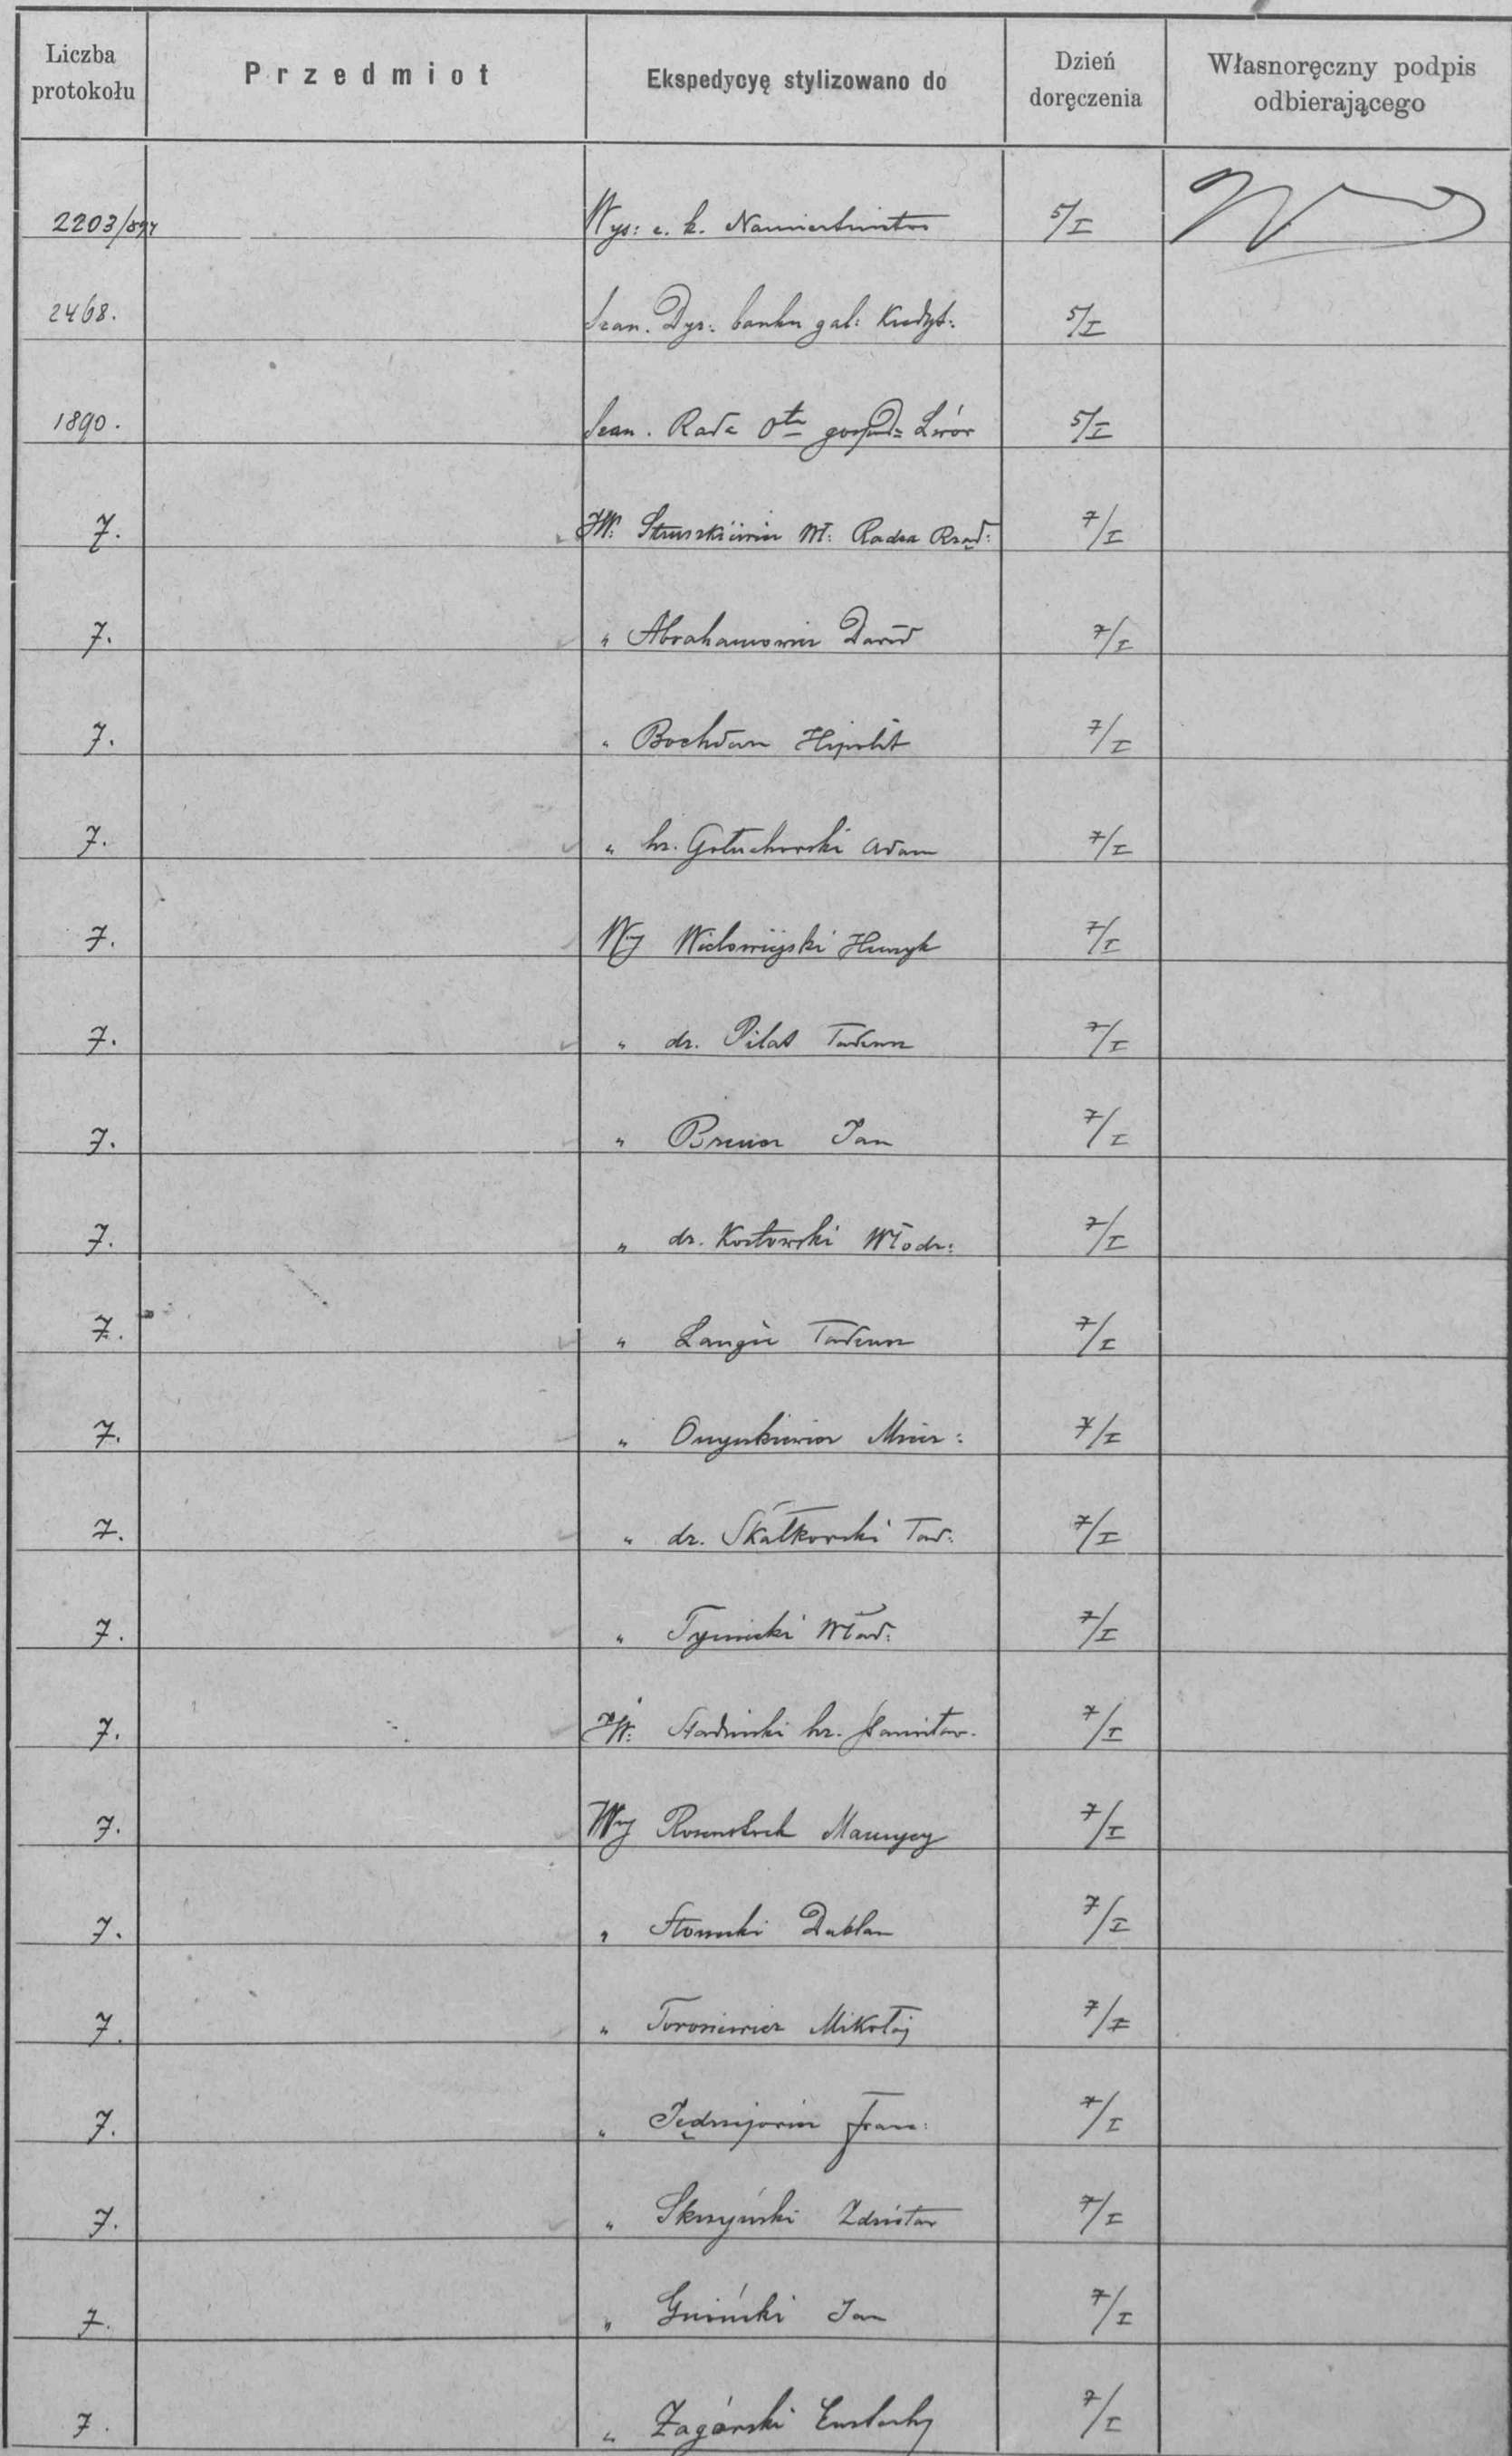 Liczba protokołu Przedmiot Ekspedycyę stylizowano do Dzień doręczenia Własnoręczny podpis odbierającego
2203/897 Wys: c. k. Namiestnictwo 5/I
2468. Szan. Dyr: banku gal: Kredyt: 5/I
1890. Szan. Rada gospod: Lwów 5/I
7. JW: Struszkiewicz Wł: Radca Rząd: 7/I
7. " Abrahamowicz Dawid 7/I
7. " Bochdan Hipolit 7/I
7. " hr. Gołuchowski Adam 7/I
7. Wny Wielowieyski Henryk 7/I
7. " dr. Pilat Tadeusz 7/I
7. " Jan 7/I
7. " dr. Kozłowski Włodz: 7/I
7. " Langie Tadeusz 7/I
7. " Onyszkiewicz 7/I
7. " dr. Skałkowski Tad: 7/I
7. " Tyniecki Wład: 7/I
7. JW: Stadnicki hr. Stanisław. 7/I
7. Wny Rosenstock Maurycy 7/I
7. " Dublan 7/I
7. " Torosiewicz Mikołaj 7/I
7. " Jędrzejowicz Franc: 7/I
7. " Skrzyński Zdzisław 7/I
7. " Jan 7/I
7. " Zagórski Eustachy 7/I